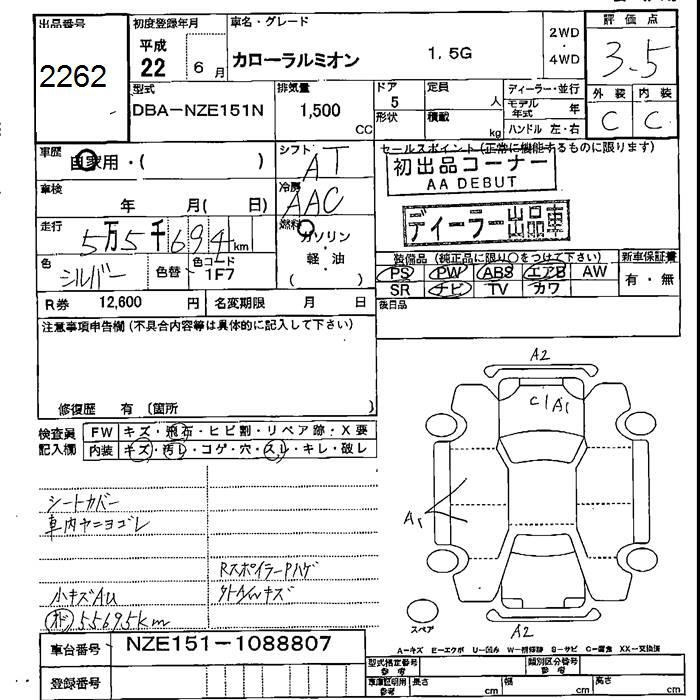 出品番号 2262
初度登録年月 平成 22 6月
車名・グレード カローラルミオン 1.5G
2WD・4WD
評価点 3.5
型式 DBA-NZE151N
排気量 1,500 CC
ドア 5 形状
定員 人
積載 kg
ディーラー・並行
モデル年式 年
ハンドル 左・右
外装 内装
C C
車歴 自家用・( )
シフト AT
セールスポイント(正常に機能するものに限ります)
初出品コーナー
AA DEBUT
車検 年 月( 日)
冷房 AAC
ディーラー出品車
走行 5万5千694km
燃料 ガソリン・軽・油 ( )
色 シルバー 色替 色コード 1F7
装備品(純正品に限り○をつけて下さい) 新車保証書
PS PW ABS エアB AW 有・無
SR ナビ TV カワ
R券 12,600 円 名変期限 月 日
後日品
注意事項申告欄(不具合内容等は具体的に記入して下さい)
修復歴 有 〔箇所 〕
検査員記入欄 FW キズ・飛石・ヒビ割・リペア跡・X要
内装 キズ・汚レ・コゲ・穴・スレ・キレ・破レ
シートカバー
車内ヤニヨゴレ
RスポイラーPハゲ
小キズAU
オド 55695km
A2
C1 A1
A1
スペア
A2
A-キズ E-エクボ U-凹み W-補修跡 S-サビ C-腐食 XX-交換済
車台番号 NZE151-1088807
登録番号
型式指定番号 参考 類別区分番号 参考
車庫証明用 参考 長さ cm 幅 cm 高さ cm